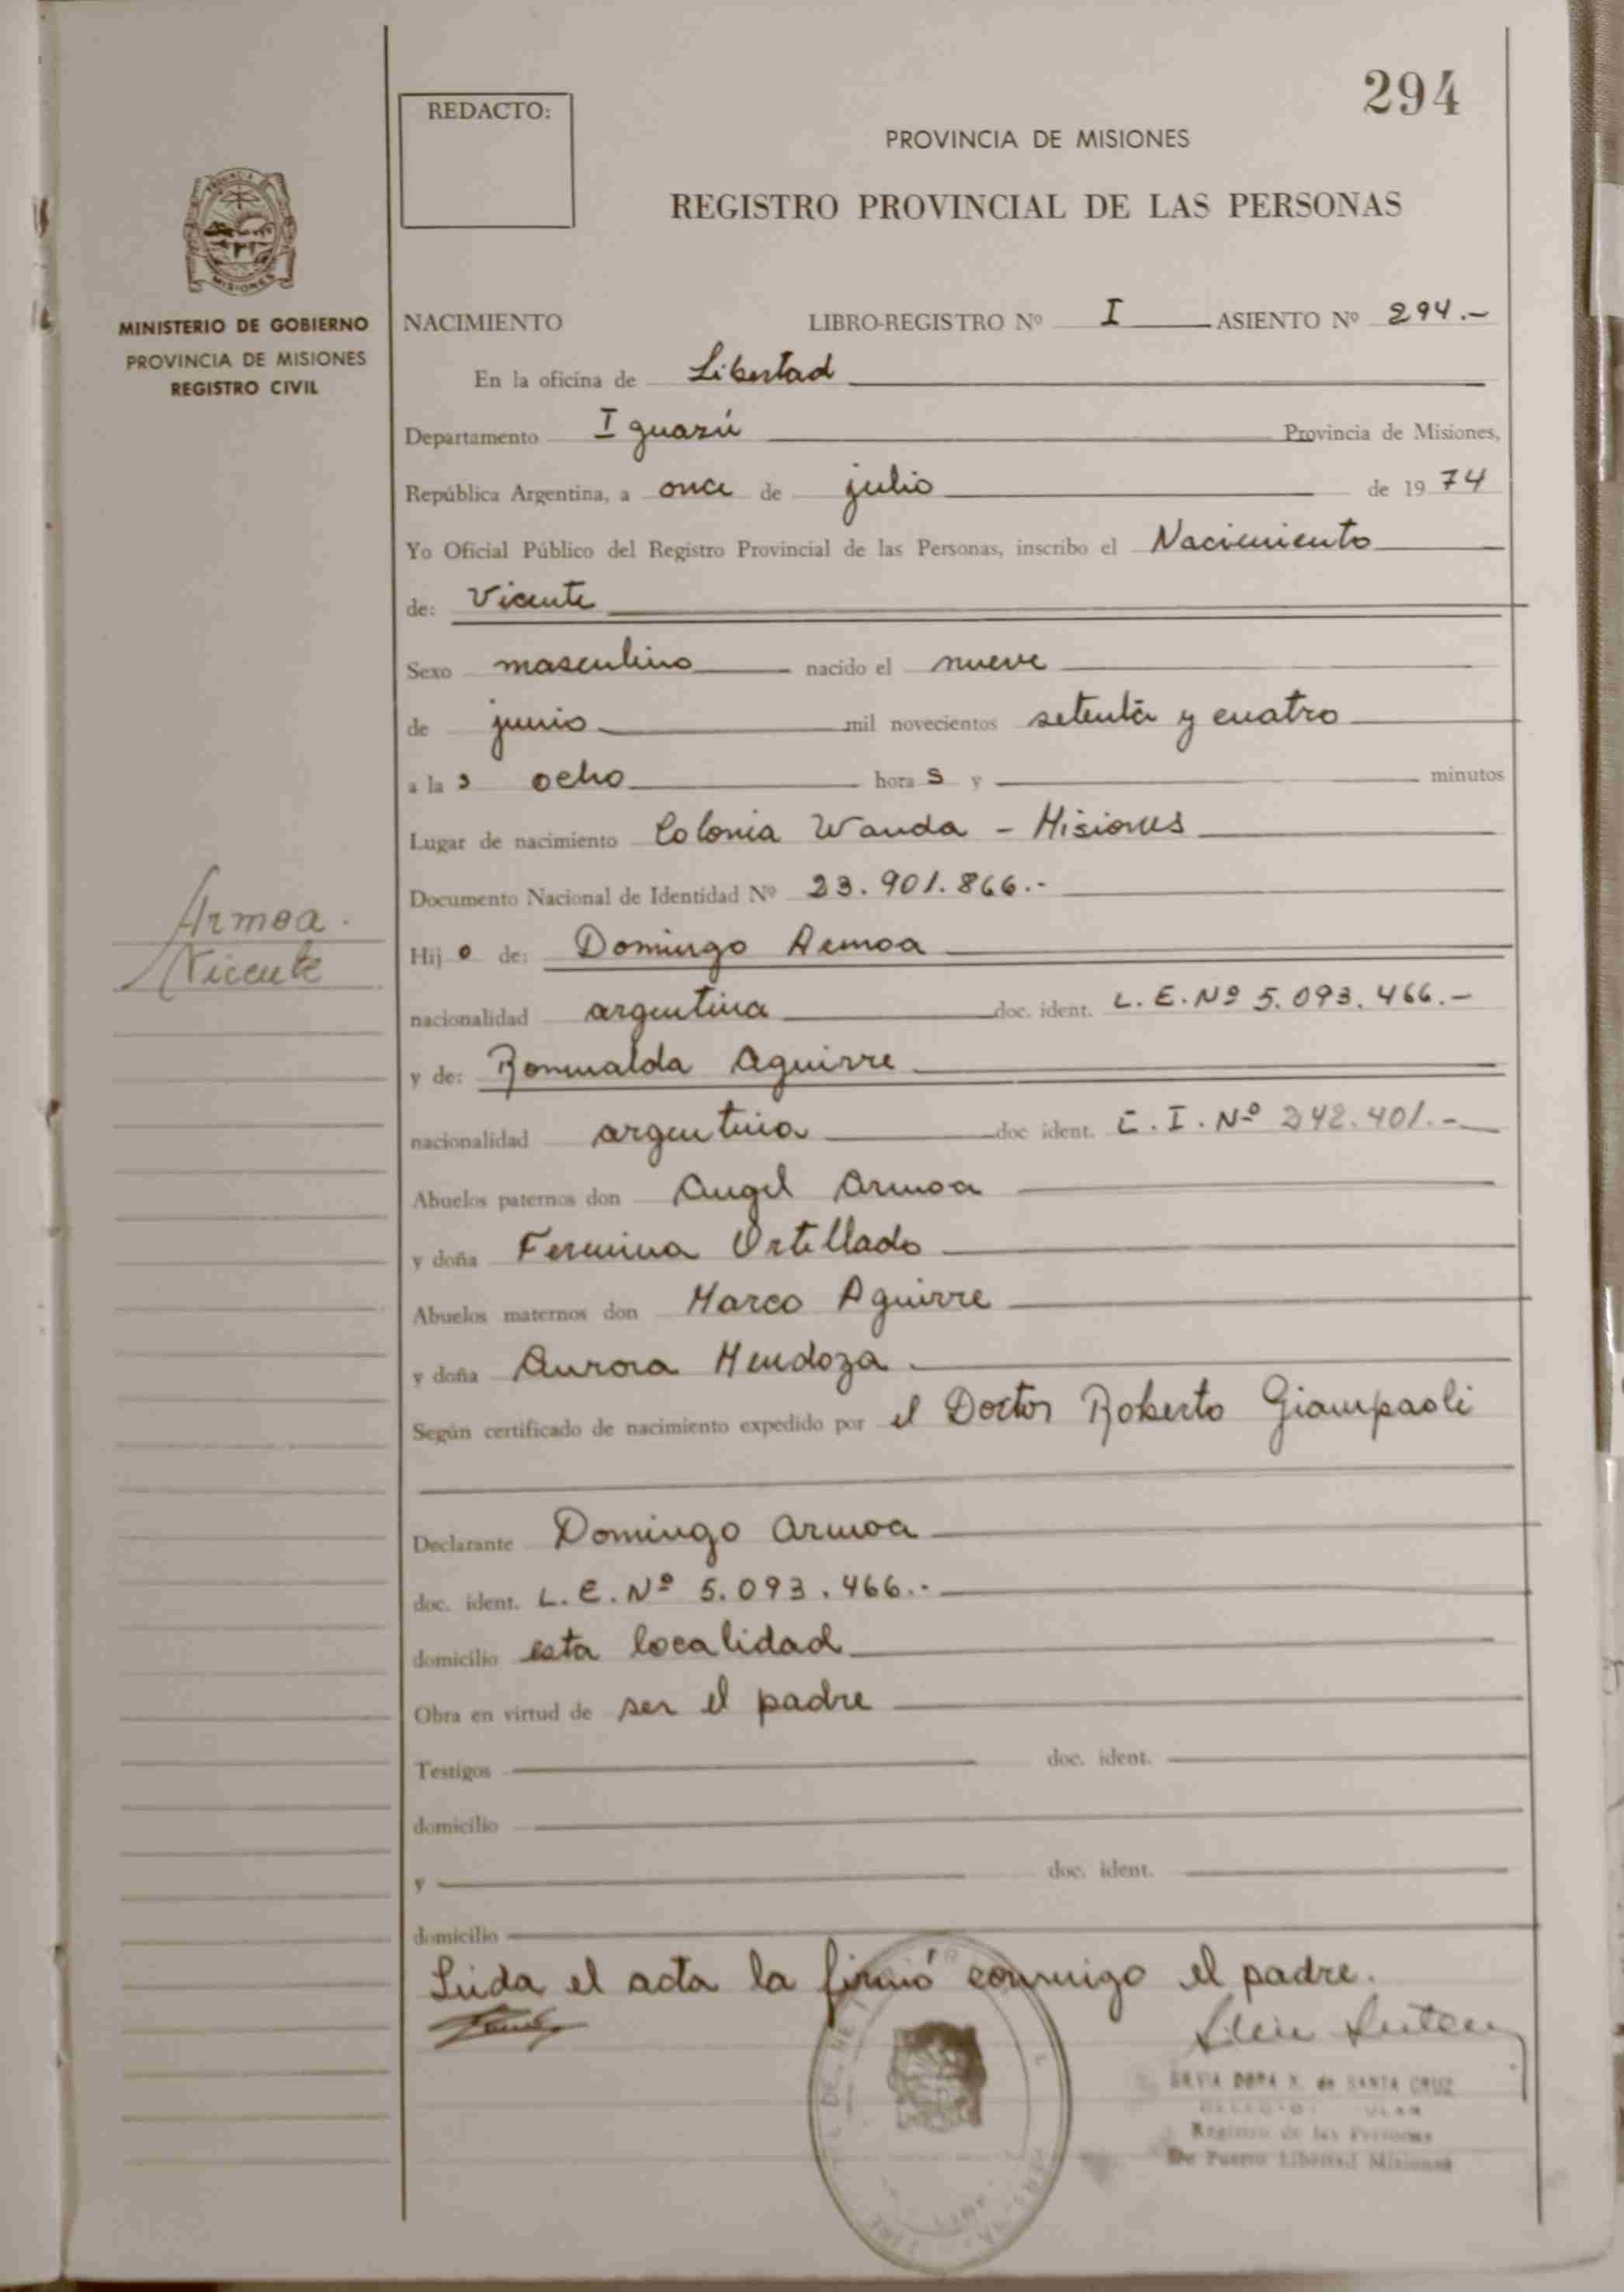 294
REDACTO:
PROVINCIA DE MISIONES
REGISTRO PROVINCIAL DE LAS PERSONAS
MISIONES
MINISTERIO DE GOBIERNO
PROVINCIA DE MISIONES
REGISTRO CIVIL
NACIMIENTO LIBRO-REGISTRO Nº I ASIENTO Nº 294.-
En la oficina de Libertad
Departamento Iguazú Provincia de Misiones,
República Argentina, a once de julio de 1974
Yo Oficial Público del Registro Provincial de las Personas, inscribo el Nacimiento
de: Vicente
Sexo masculino nacido el nueve
de junio mil novecientos setenta y cuatro
a las ocho horas y minutos
Lugar de nacimiento Colonia Wanda - Misiones
Documento Nacional de Identidad Nº 23.901.866.-
Armoa.
Vicente
Hijo de: Domingo Armoa
nacionalidad argentina doc. ident. L.E.Nº 5.093.466.-
y de: Romualda Aguirre
nacionalidad argentina doc ident. C.I.Nº 242.401.-
Abuelos paternos don Angel Armoa
y doña Fermina Ortellado
Abuelos maternos don Marco Aguirre
y doña Aurora Mendoza
Según certificado de nacimiento expedido por el Doctor Roberto Giampaoli
Declarante Domingo Armoa
doc. ident. L.E.Nº 5.093.466.-
domicilio esta localidad
Obra en virtud de ser el padre
Testigos doc. ident.
domicilio
y doc. ident.
domicilio
Leida el acta la firmó conmigo el padre.
SILVIA DORA X. de SANTA CRUZ
Registro de las Personas
De Puerto Libertad Misiones